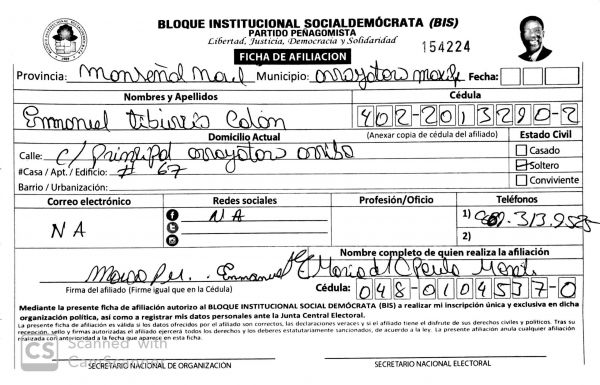 BLOQUE INSTITUCIONAL SOCIALDEMÓCRATA (BIS)
PARTIDO PEÑAGOMISTA
Libertad, Justicia, Democracia y Solidaridad
154224
FICHA DE AFILIACION
Provincia: Monseñol Nouel Municipio: Fecha:
Nombres y Apellidos Cédula
Emmanuel Tiburcio Colón 402-2013290-2
Domicilio Actual (Anexar copia de cédula del afiliado) Estado Civil
Calle: c/ Principal arroyotoro arriba Casado
Soltero
#Casa / Apt. / Edificio: # 67
Conviviente
Barrio / Urbanización:
Correo electrónico Redes sociales Profesión/Oficio Teléfonos
NA NA 1) 313.9585
2)
Nombre completo de quien realiza la afiliación
Emmanuel Maria
Firma del afiliado (Firme igual que en la Cédula) Cédula: 048-0104537-0
Mediante la presente ficha de afiliación autorizo al BLOQUE INSTITUCIONAL SOCIAL DEMÓCRATA (BIS) a realizar mi inscripción única y exclusiva en dicha
organización política, así como a registrar mis datos personales ante la Junta Central Electoral.
La presente ficha de afiliación es válida si los datos ofrecidos por el afiliado son correctos, las declaraciones veraces y si el afiliado tiene el disfrute de sus derechos civiles y políticos. Tras su
recepción, sello y firmas autorizadas el afiliado ejercerá todos los derechos y los deberes estatutariamente sancionados, de acuerdo a la ley. La presente afiliación anula cualquier afiliación
realizada con anterioridad a la fecha que aparece en esta ficha.
CS Scanned with
CamScanner
SECRETARIO NACIONAL DE ORGANIZACIÓN SECRETARIO NACIONAL ELECTORAL